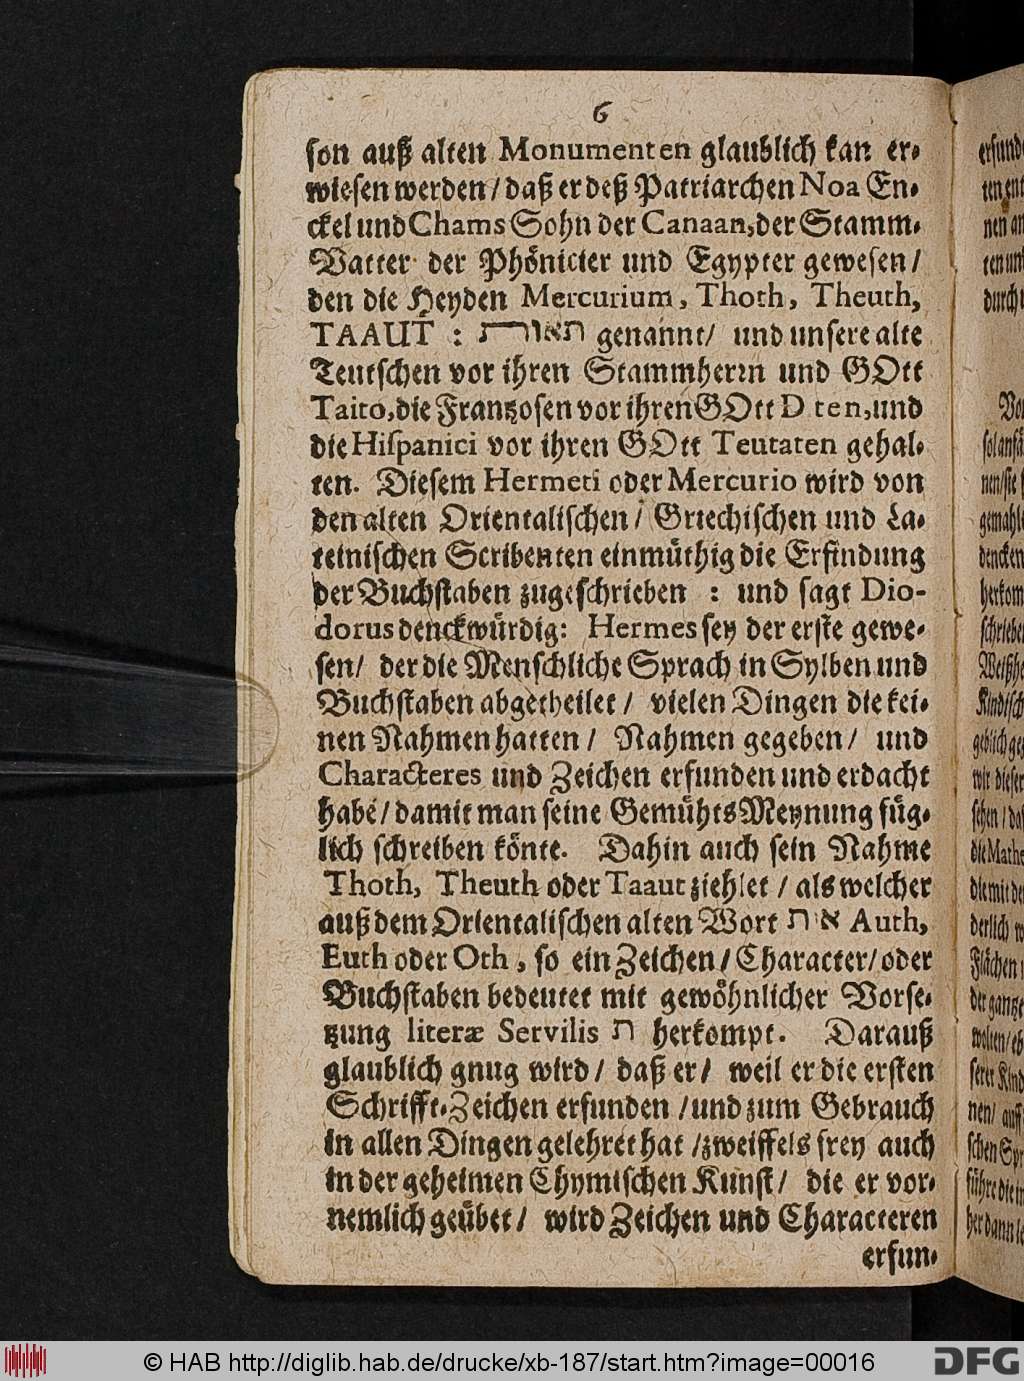 6
son auß alten Monumenten glaublich kan er-
wiesen werden / daß er deß Patriarchen Noa En-
ckel und Chams Sohn der Canaan, der Stamm-
Vatter der Phönicier und Egypter gewesen /
den die Heyden Mercurium, Thoth, Theuth,
TAAUT : תאות genannt / und unsere alte
Teutschen vor ihren Stammherrn und GOtt
Taito, die Frantzosen vor ihren GOtt D ten, und
die Hispanici vor ihren GOtt Teutaten gehal-
ten. Diesem Hermeti oder Mercurio wird von
den alten Orientalischen / Griechischen und La-
teinischen Scribenten einmüthig die Erfindung
der Buchstaben zugeschrieben : und sagt Dio-
dorus denckwürdig: Hermes sey der erste gewe-
sen / der die Menschliche Sprach in Sylben und
Buchstaben abgetheilet / vielen Dingen die kei-
nen Nahmen hatten / Nahmen gegeben / und
Characteres und Zeichen erfunden und erdacht
habe / damit man seine Gemühts Meynung füg-
lich schreiben könte. Dahin auch sein Nahme
Thoth, Theuth oder Taaut ziehlet / als welcher
auß dem Orientalischen alten Wort אות Auth,
Euth oder Oth, so ein Zeichen / Character / oder
Buchstaben bedeutet mit gewöhnlicher Vorse-
tzung literæ Servilis ת herkompt. Darauß
glaublich gnug wird / daß er / weil er die ersten
Schrifft-Zeichen erfunden / und zum Gebrauch
in allen Dingen gelehret hat / zweiffels frey auch
in der geheimen Chymischen Kunst / die er vor-
nemlich geübet / wird Zeichen und Characteren
erfun-
© HAB http://diglib.hab.de/drucke/xb-187/start.htm?image=00016
DFG